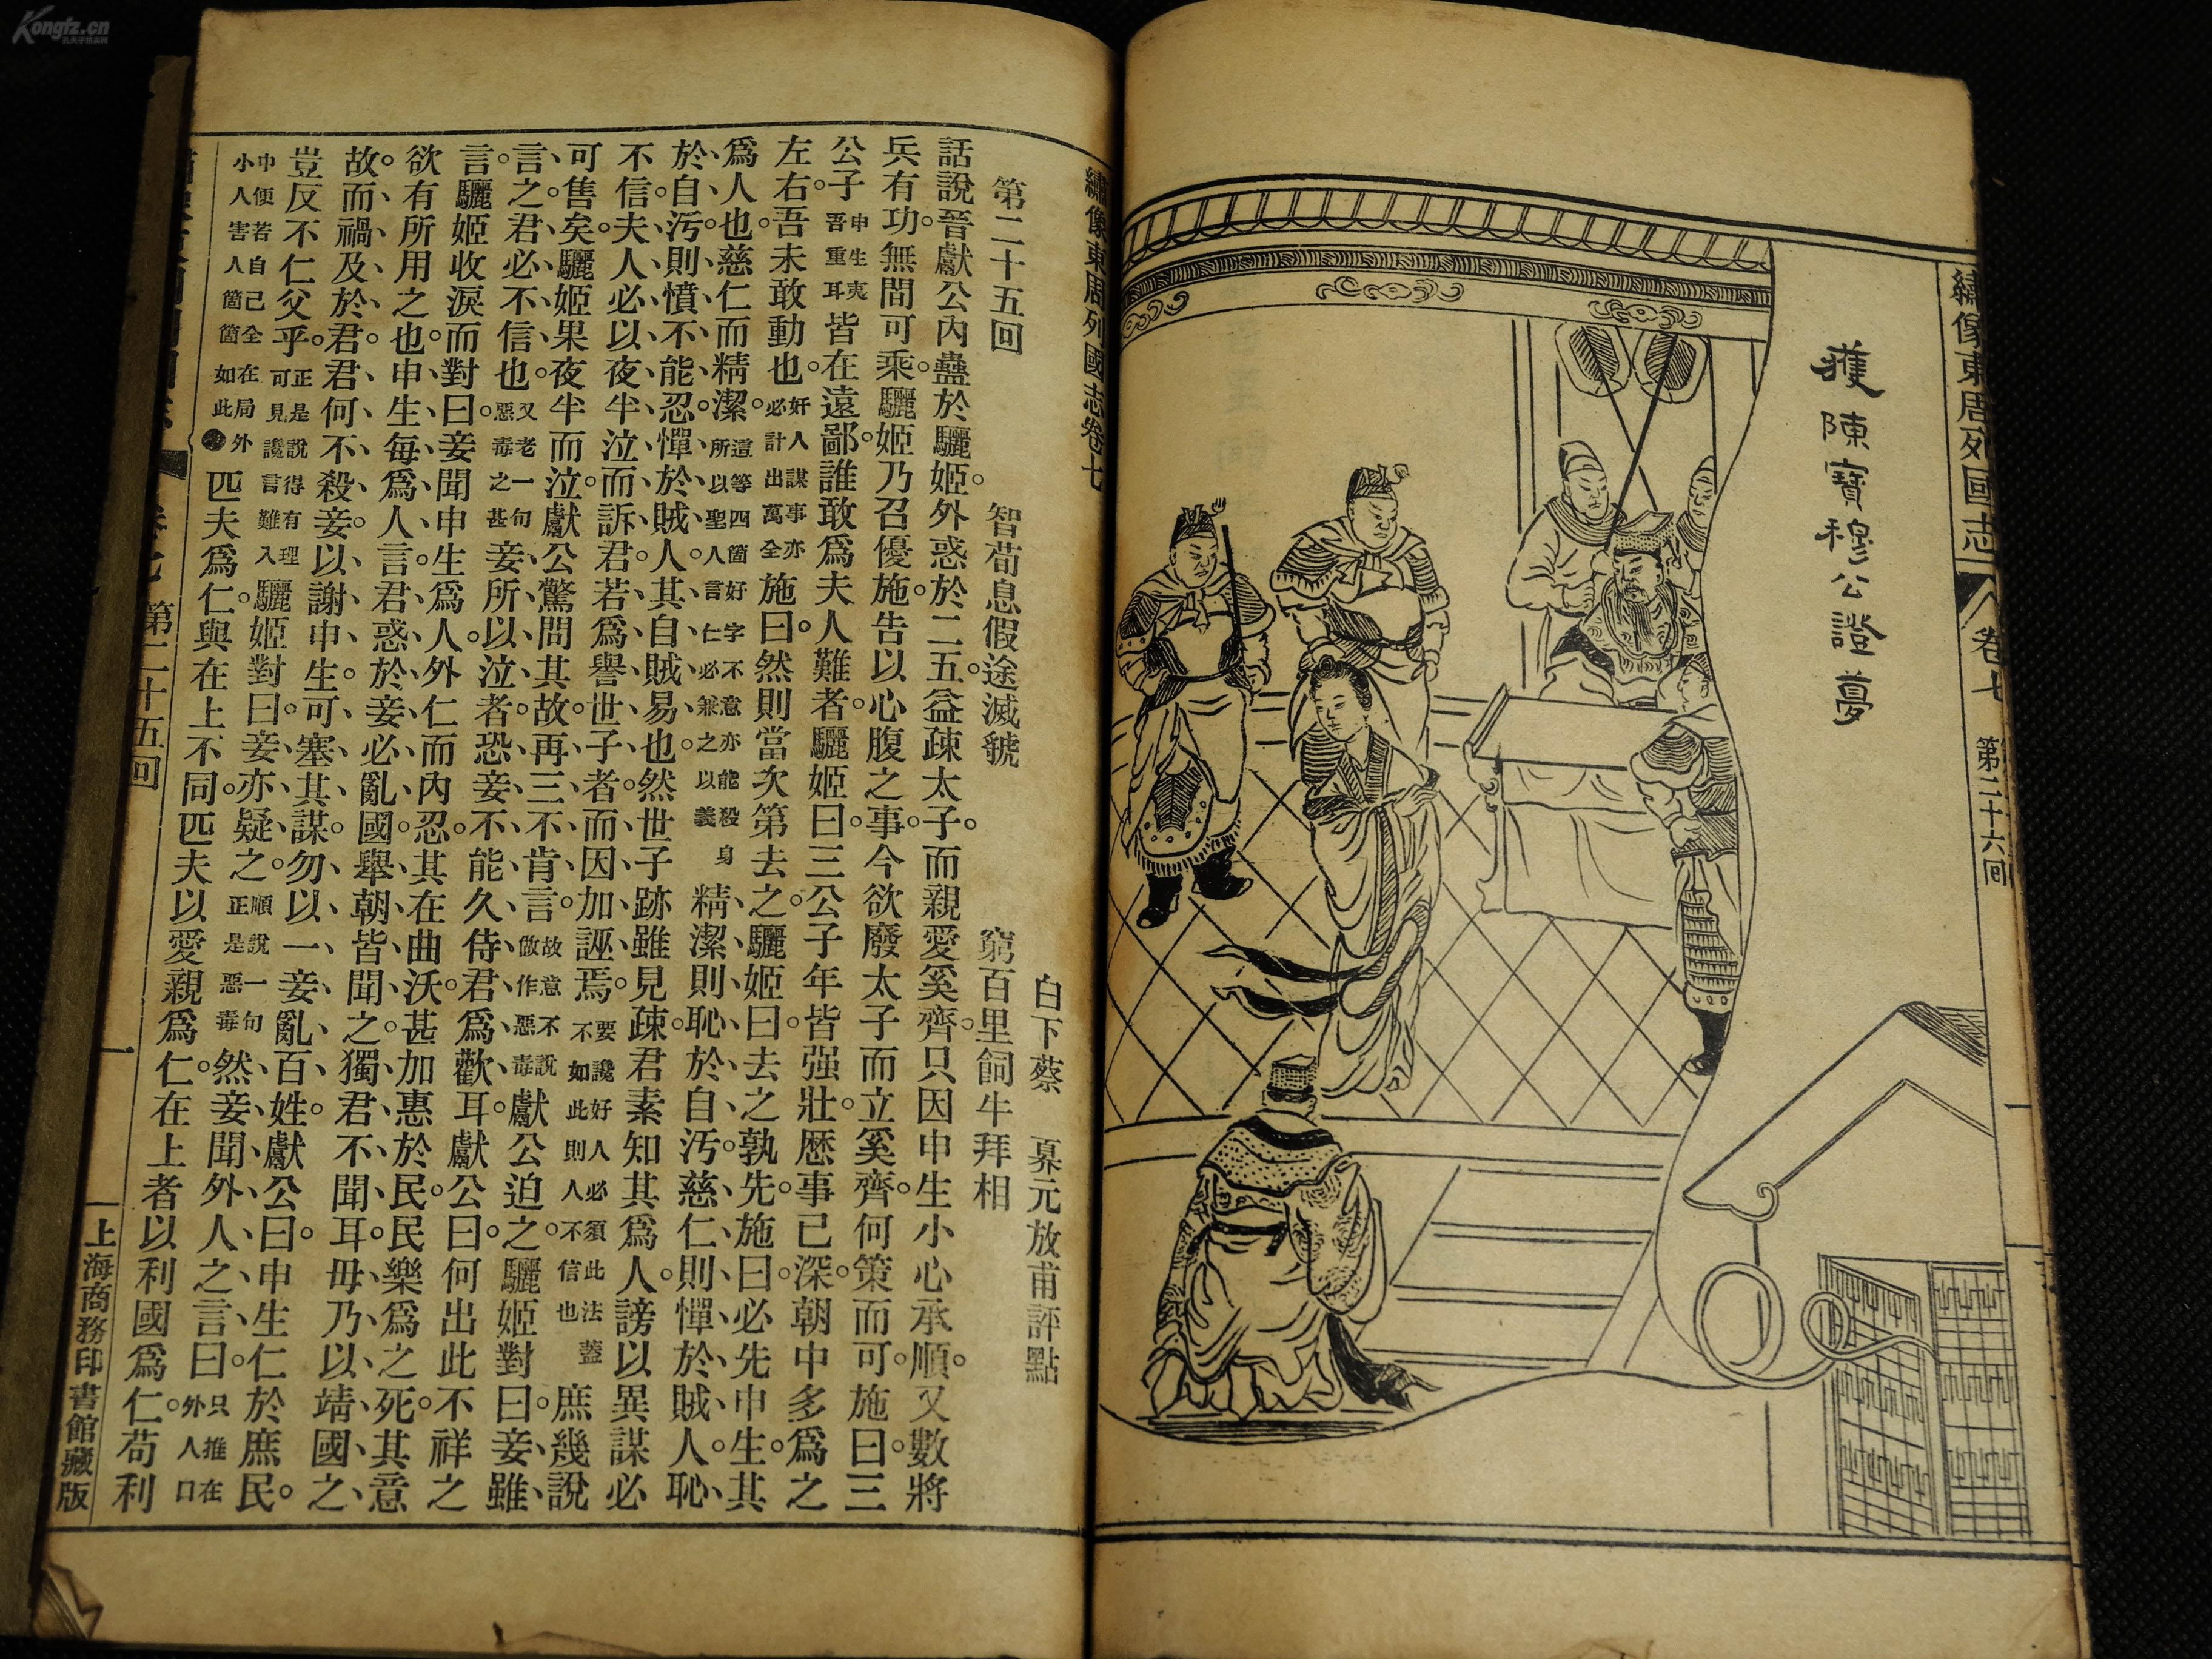 Kongfz.cn
孔夫子舊書網
繡像東周列國志
卷七 第二十六回
一
獲陳寶穆公證夢
繡像東周列國志卷七
白下蔡 奡元放甫評點
第二十五回 智荀息假途滅虢 窮百里飼牛拜相
話說晉獻公內蠱於驪姬。外惑於二五。益疎太子。而親愛奚齊。只因申生小心承順。又數將
兵有功。無間可乘。驪姬乃召優施。告以心腹之事。今欲廢太子而立奚齊。何策而可。施曰。三
公子申生夷吾重耳皆在遠鄙。誰敢爲夫人難者。驪姬曰。三公子年皆强壯。歷事已深。朝中多爲之
左右。吾未敢動也。奸人謀事亦必計出萬全施曰。然則當次第去之。驪姬曰。去之孰先。施曰。必先申生。其
爲人也。慈仁而精潔。這等四箇好字不意亦能殺身所以聖人言仁必兼之以義精潔則恥於自汚。慈仁則憚於賊人。恥
於自汚。則憤不能忍。憚於賊人。其自賊易也。然世子跡雖見疎。君素知其爲人。謗以異謀必
不信。夫人必以夜半泣而訴君。若爲譽世子者。而因加誣焉。要讒好人必須此法蓋不如此則人不信也庶幾說
可售矣。驪姬果夜半而泣。獻公驚問其故。再三不肯言。故意不說做作惡毒獻公迫之。驪姬對曰。妾雖
言之。君必不信也。又老一句惡毒之甚妾所以泣者。恐妾不能久侍君爲歡耳。獻公曰。何出此不祥之
言。驪姬收淚而對曰。妾聞申生爲人。外仁而內忍。其在曲沃。甚加惠於民。民樂爲之死。其意
欲有所用之也。申生每爲人言。君惑於妾。必亂國。舉朝皆聞之。獨君不聞耳。毋乃以靖國之
故。而禍及於君。君何不殺妾。以謝申生。可塞其謀。勿以一妾亂百姓。獻公曰。申生仁於庶民。
豈反不仁父乎。正是說得有理可見讒言難入驪姬對曰。妾亦疑之。順說一句正是惡毒然妾聞外人之言曰。只推在外人口
中便若自己全在局外小人害人箇箇如此匹夫爲仁。與在上不同。匹夫以愛親爲仁。在上者以利國爲仁。苟利
第二十五回
一
上海商務印書館藏版